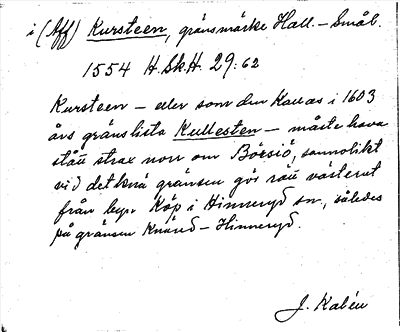 i (Aff) Kursteen, gränsmärke Hall. – Smål.
1554 H.Sk.H. 29:62
Kursteen – eller som den kallas i 1603
års gränslista Kullesten – måste hava
stått strax norr om Böksjö, sannolikt
vid det knä gränsen gör rätt västerut
från byn Köp i Hinneryd sn., således
på gränsen Knäred – Hinneryd.
J. Kalén